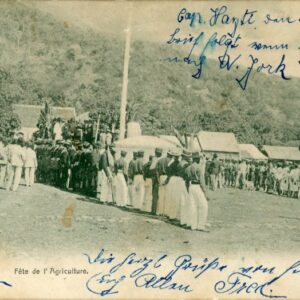 Cap. Hayti den
Brief folgt wenn
nach N. York
Fête de l'Agriculture.
Die herzl. Grüße von
Euch Allen Fred.